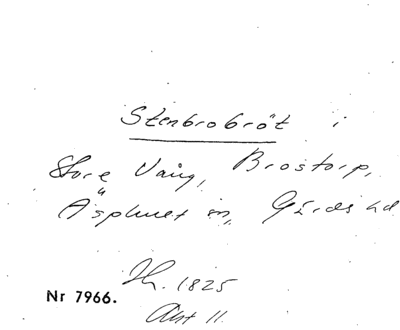 Stenbrobröt i
Store Vång, Brostorp,
Äsphult sn, Gärds hd
Nr 7966.
Th. 1825
Akt 11.